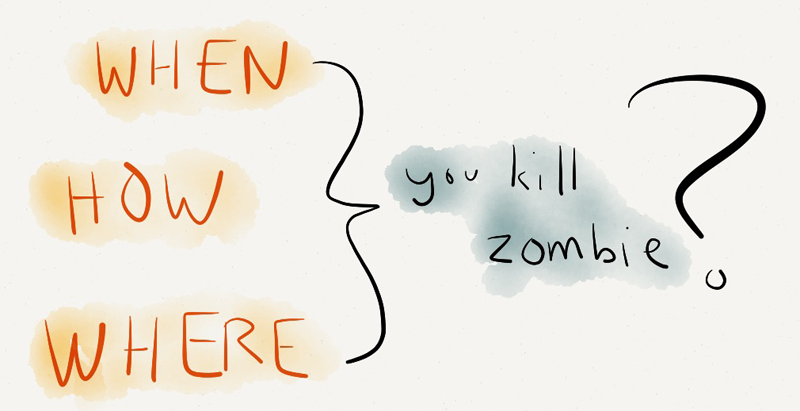 WHEN
HOW
WHERE
you kill
zombie
?